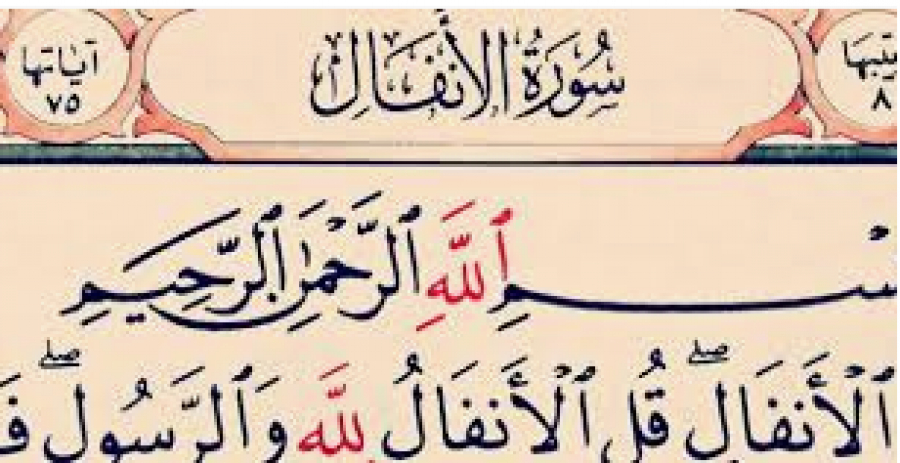 ترتيبها ٨
سُورَةُ الأَنفَالِ
آياتها ٧٥
بِسْمِ ٱللَّهِ ٱلرَّحْمَٰنِ ٱلرَّحِيمِ
ٱلْأَنفَالِۖ قُلِ ٱلْأَنفَالُ لِلَّهِ وَٱلرَّسُولِۖ